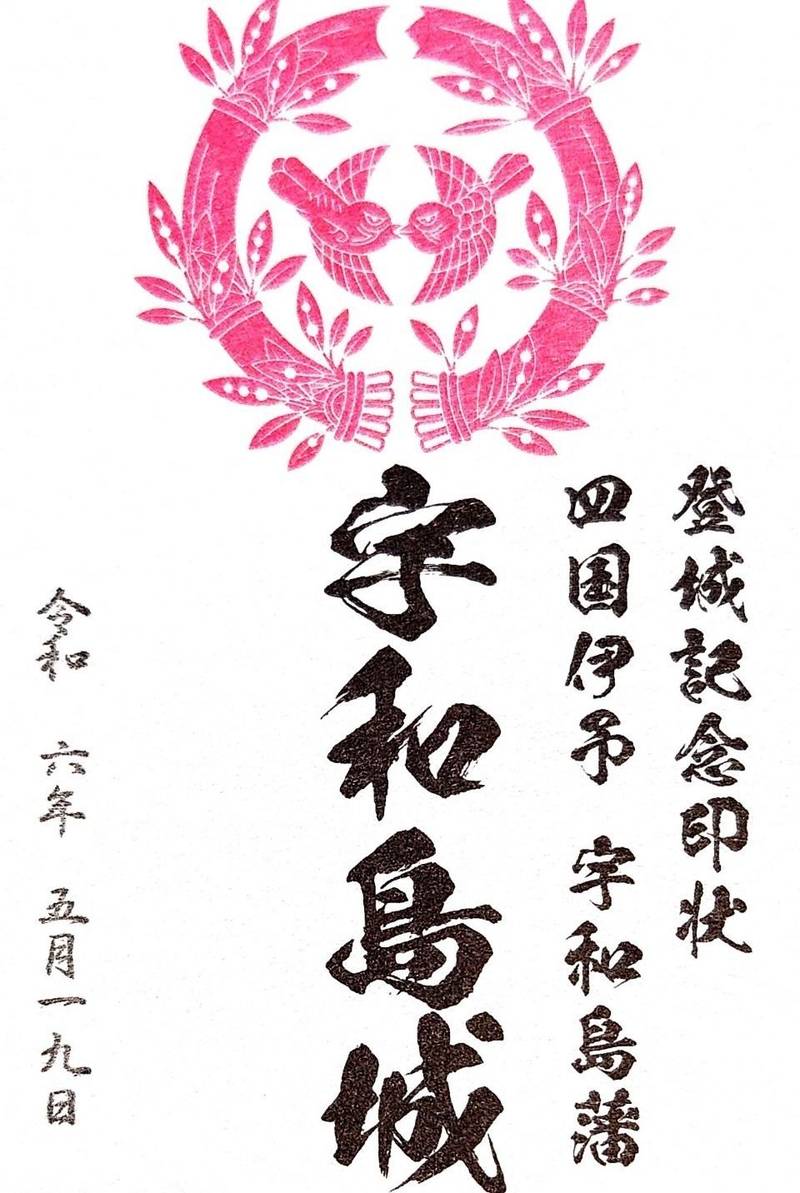 登城記念印状
四国伊予 宇和島藩
宇和島城
令和 六年 五月一九日